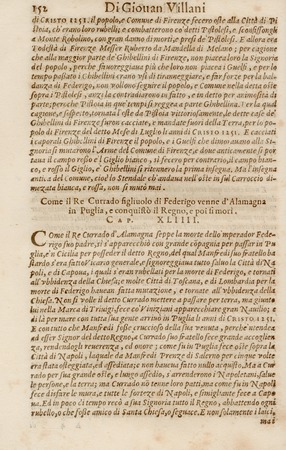 152 Di Giouan Villani
di CRISTO 1251. il popolo, e Comune di Firenze fecero oste alla Città di Pi
stoia, ch'erano loro rubelli; e combatterono co' detti Pistolesi, e sconfissongli
a Monte Robolino, con gran danno di morti, e presi de' Pistolesi. E allora era
Podestà di Firenze Messer Ruberto da Mandella di Melano; per cagione
che alla maggior parte de' Ghibellini di Firenze, non piacea loro la Signoria
del popolo, perche
tempo passato i Ghibellini erano usi di tiranneggiare, e sforzare per la balì-
danza di Federigo, non vollono seguire il popolo, e Comune nella detta oste
sopra i Pistolesi; anzi, in detto, e in fatto
parte; perche Pistoia in que' tempi si reggea a parte Ghibellina. Per la qual
cagione, e sospetto, tornata l'oste da Pistoia vittoriosamente, le dette case de'
Ghibellini di Firenze furono cacciate, e mandate fuori della Terra, per lo po
polo di Firenze del detto Mese di Luglio li anni di CRISTO 1251. E cacciati
i caporali Ghibellini di Firenze, il popolo, e i Guelfi che dimorarono alla Si-
gnoria si mutarono l'Arme del Comune di Firenze; e dove anticamente si por
taua il campo rosso e 'l Giglio bianco, si fecero per contrario, il campo bian-
co, e rosso il Giglio, e' Ghibellini si ritennero la prima insegna. Ma l'insegna
antica del Comune, cioè lo Stendale ch'andaua nell'oste in sul Carroccio di-
mezzata bianca, e rossa, non si mutò mai.
Come il Re Currado figliuolo di Federigo venne d'Alamagna
in Puglia, e conquistò il Regno, e poi si morì.
CAP. XLIIII.
Come il Re Currado d'Alamagna seppe la morte dello imperador Fede-
rigo suo padre, si s'apparecchiò con grande compagnia per passare in Pu-
glia, e 'n Cicilia per possedere il detto Regno, del qual Manfredi suo fratello ba
stardo s'era fatto vicario generale, e signoreggiaua tutto saluo la Città di Napo
li, e di Capoua, i quali s'eran rubellati per la morte di Federigo, e tornati
all'ubbidenza della Chiesa; e molte Città di Toscana, e di Lombardia per la
morte di Federigo haueano fatta mutazione, e tornate all'ubbidenza della
Chiesa. Non si volle il detto Currado mettere a passare per terra, ma giunto
lui nella Marca di Triuigi, fece co' Viniziani apparecchiare gran Nauilio; e
di là per mare con tutta sua gente arriuò in Puglia li anni di CRISTO 1251.
E con tutto che Manfredi fosse cruccioso della sua venuta, perche attendea
ad esser Signor del detto Regno, a Currado suo fratello fece grande accoglien
za, rendendogli reuerenza, ed onore; come fu in Puglia fece oste sopra la
Città di Napoli, laquale da Manfredi Prenze di Salerno per cinque volte
era stata osteggiata, ed assediata; e non hauea fatto nullo acquisto. Ma a Cur-
rado per sua grande oste, e lungo assedio, s'arrenderono i Napoletani, salue
le persone, e la terra; ma Currado nò tenne loro patti, ma come fu in Napoli
fece disfare le mura, e tutte le fortezze di Napoli, e simigliante fece a Capo-
ua. Ed in poco di tempo recò a sua Signoria tutto il Regno, abbattendo ogni
rubello, o che fosse amico di Santa Chiesa, o seguace. E non solamente i laici,
ma i